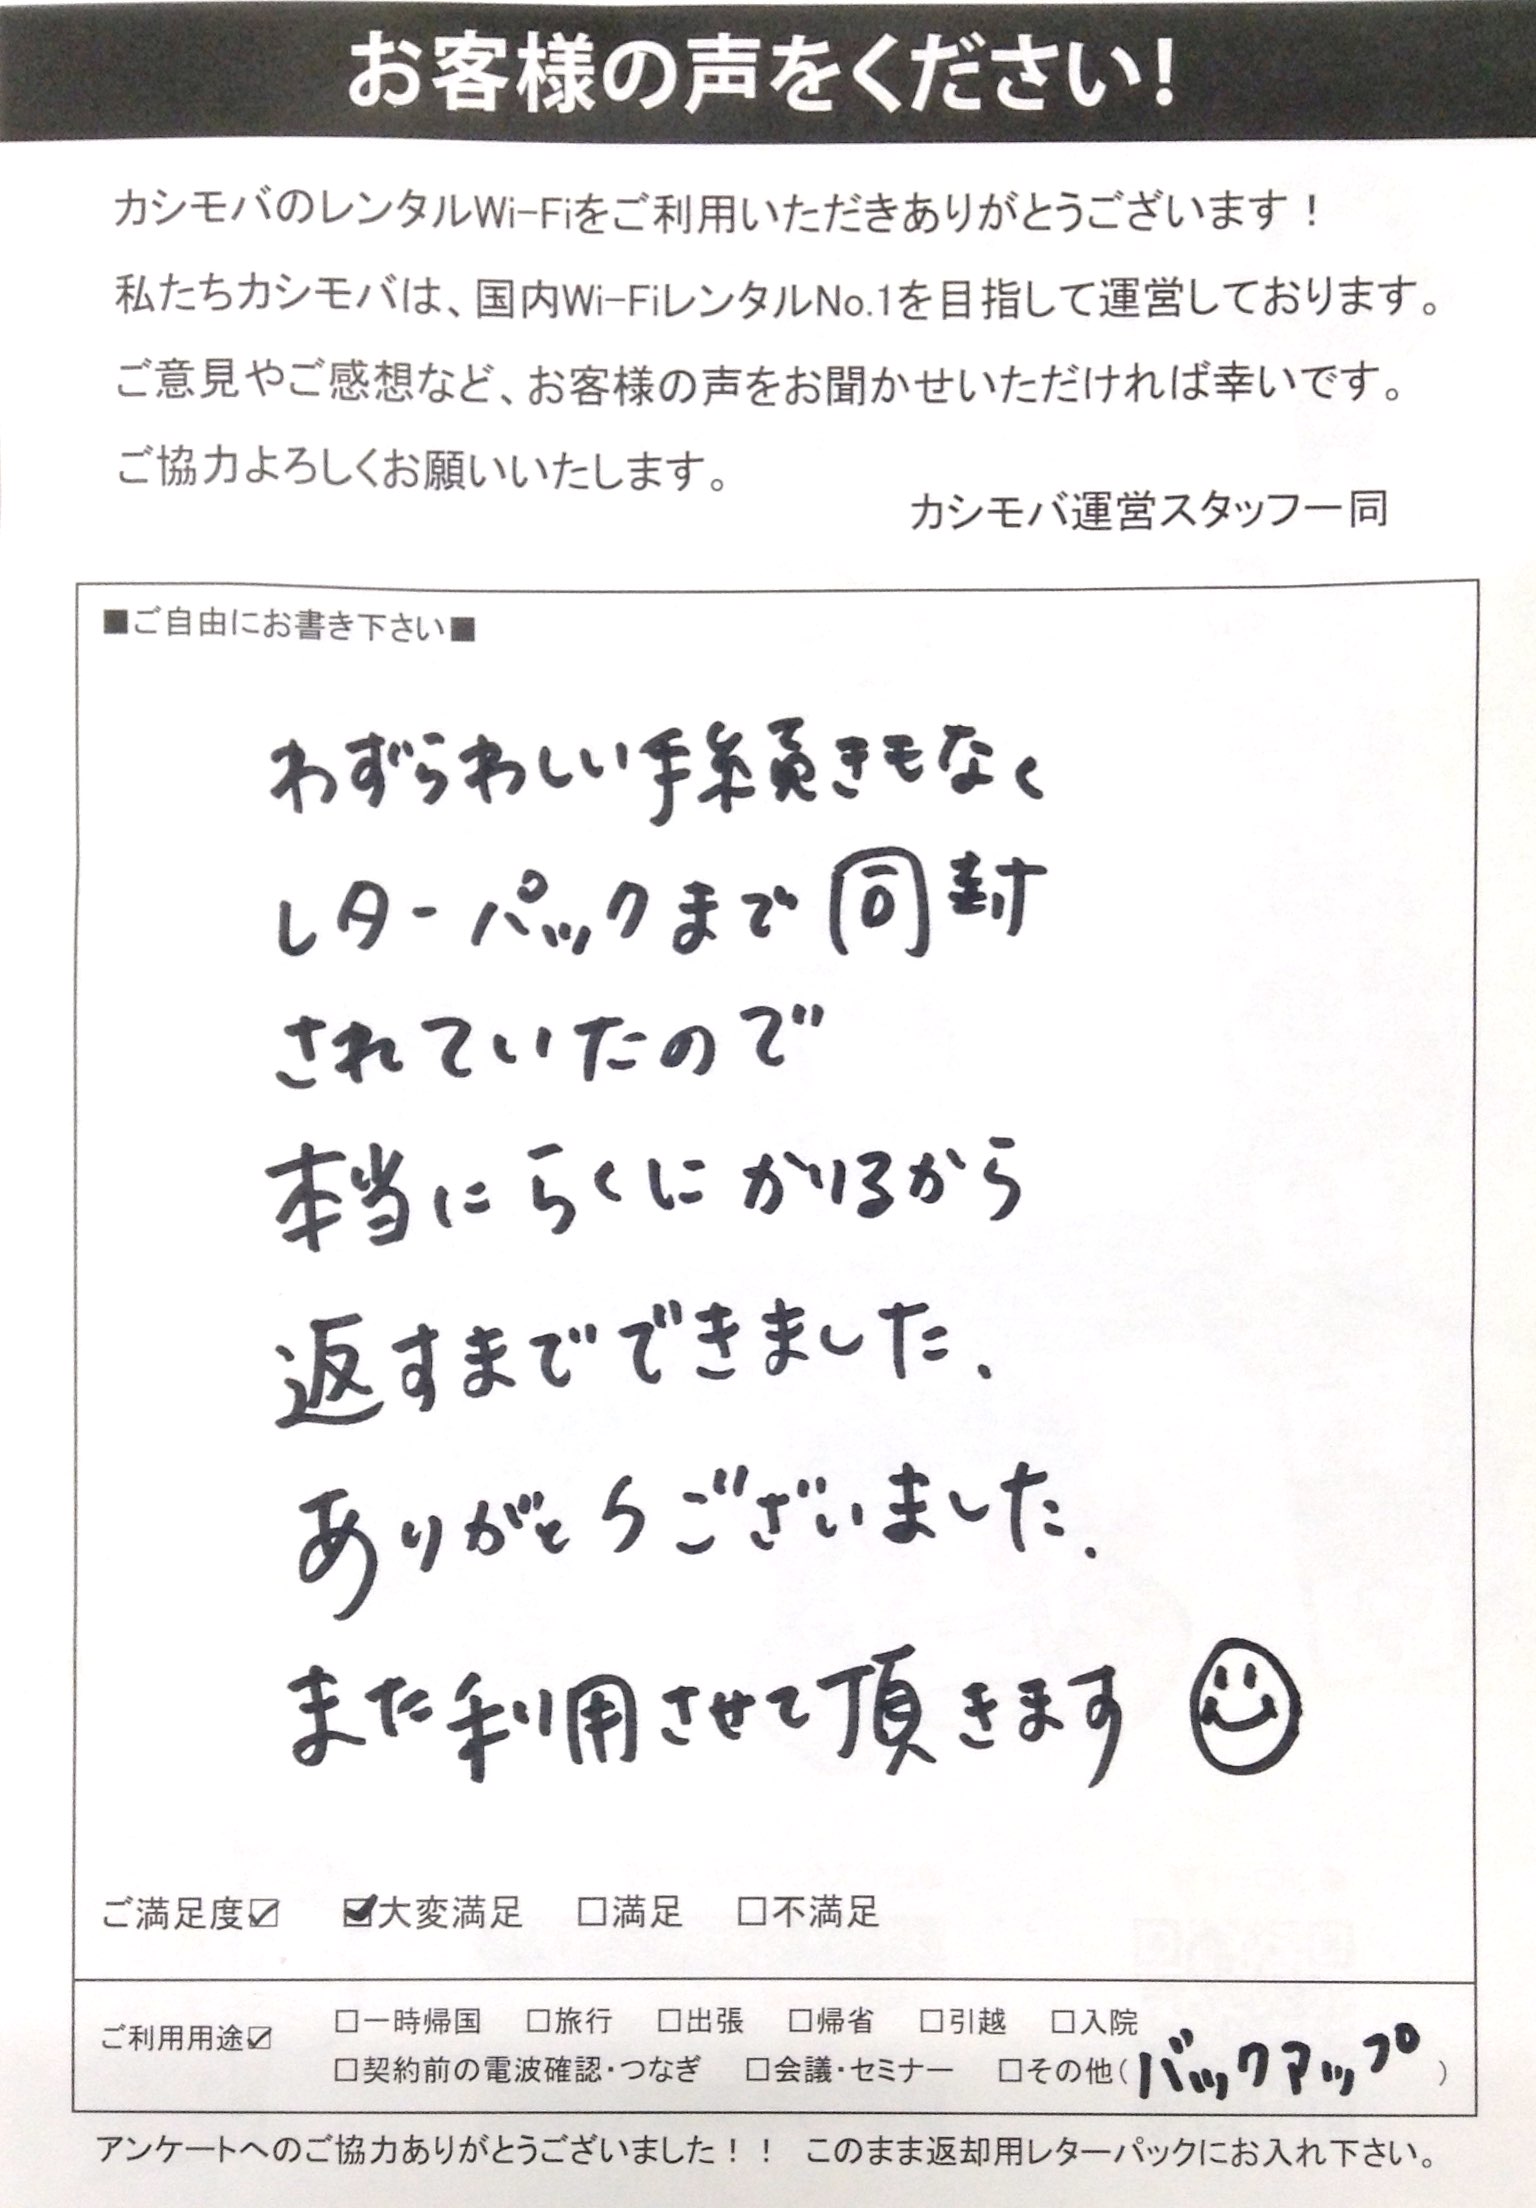 お客様の声をください!
カシモバのレンタルWi-Fiをご利用いただきありがとうございます！
私たちカシモバは、国内Wi-FiレンタルNo.1を目指して運営しております。
ご意見やご感想など、お客様の声をお聞かせいただければ幸いです。
ご協力よろしくお願いいたします。
カシモバ運営スタッフ一同
■ご自由にお書き下さい■
わずらわしい手続きもなく
レターパックまで同封
されていたので
本当にらくにかりるから
返すまでできました、
ありがとうございました.
また利用させて頂きます
ご満足度☑ ☑大変満足 □満足 □不満足
ご利用用途☑ □一時帰国 □旅行 □出張 □帰省 □引越 □入院
□契約前の電波確認・つなぎ □会議・セミナー □その他(バックアップ)
アンケートへのご協力ありがとうございました！！ このまま返却用レターパックにお入れ下さい。